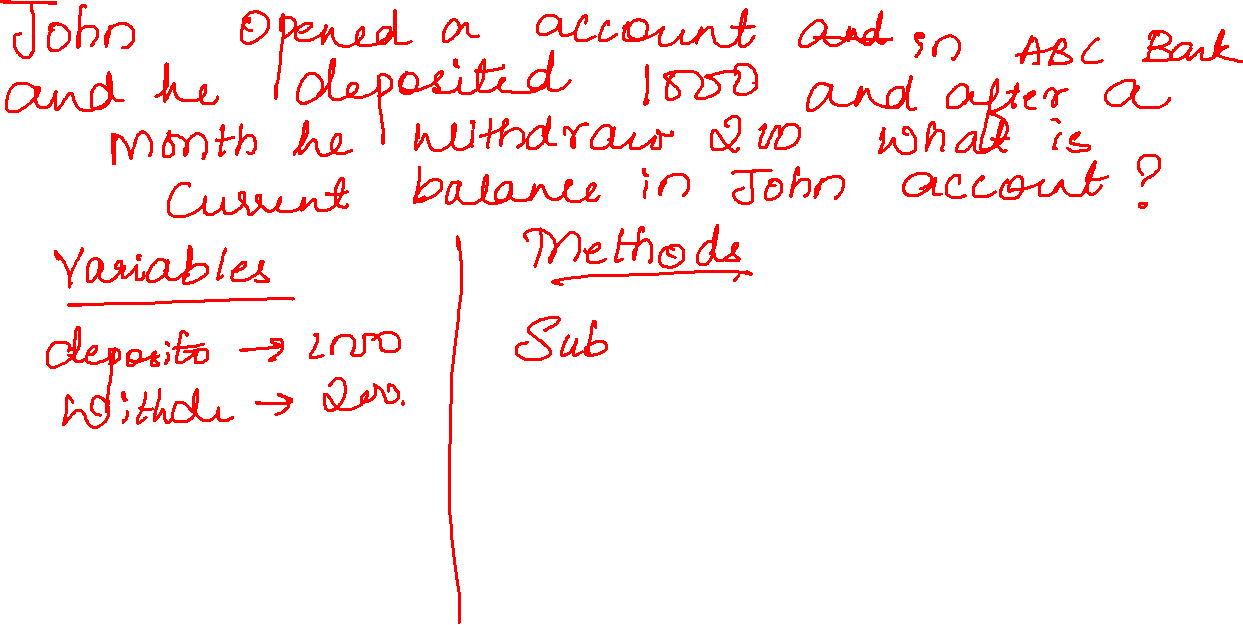 John opened a account and in ABC Bank
and he deposited 1000 and after a
month he withdraw 200 what is
current balance in John account?
Variables
Methods
deposito → 1000
Sub
withdr → 200.